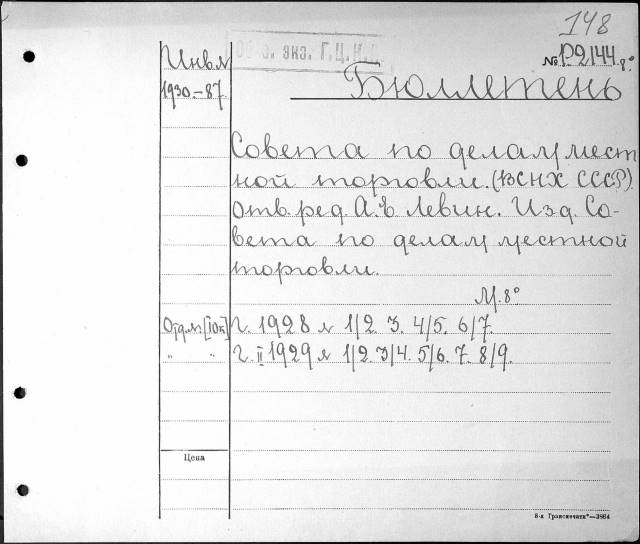 148
экз. Г.Ц.К.П.
№ Р2144.8°
Инв.№
1930.-87.
Бюллетень
Совета по делам мест
ной торговли. (ВСНХ СССР).
Отв. ред. А. Левин. Изд. Со-
вета по делам местной
торговли.
М. 8°
г. I 1928 № 1/2. 3. 4/5. 6/7.
" " г. II 1929 № 1/2. 3/4. 5/6. 7. 8/9.
Цена